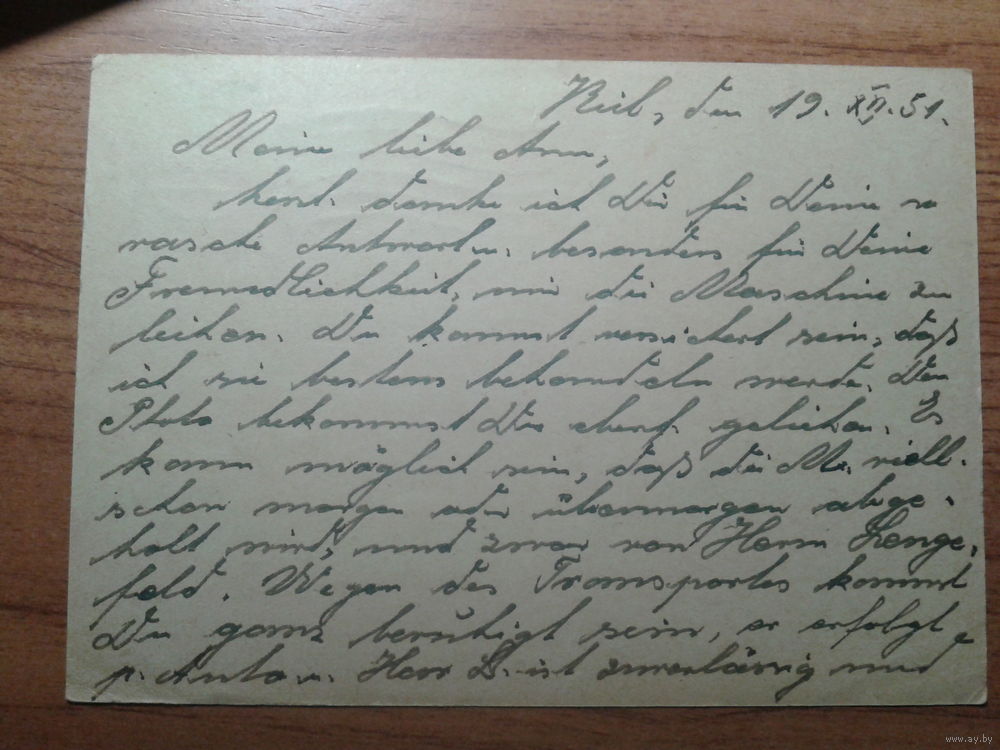 Kiel, den 19. XII. 51.
Meine liebe Ann,
herzl. danke ich Dir für Deine so
rasche Antwort u. besonders für Deine
Freundlichkeit, mir die Maschine zu
leihen. Du kannst versichert sein, daß
ich sie bestens behandeln werde. Den
Photo bekommst Du ebenf. geliehen. Es
kann möglich sein, daß die M. viell.
schon morgen oder übermorgen abge-
holt wird, und zwar von Herrn Lenge-
feld. Wegen des Transportes kannst
Du ganz beruhigt sein, er erfolgt
p. Auto u. Herr L. ist zuverlässig und
www.ay.by